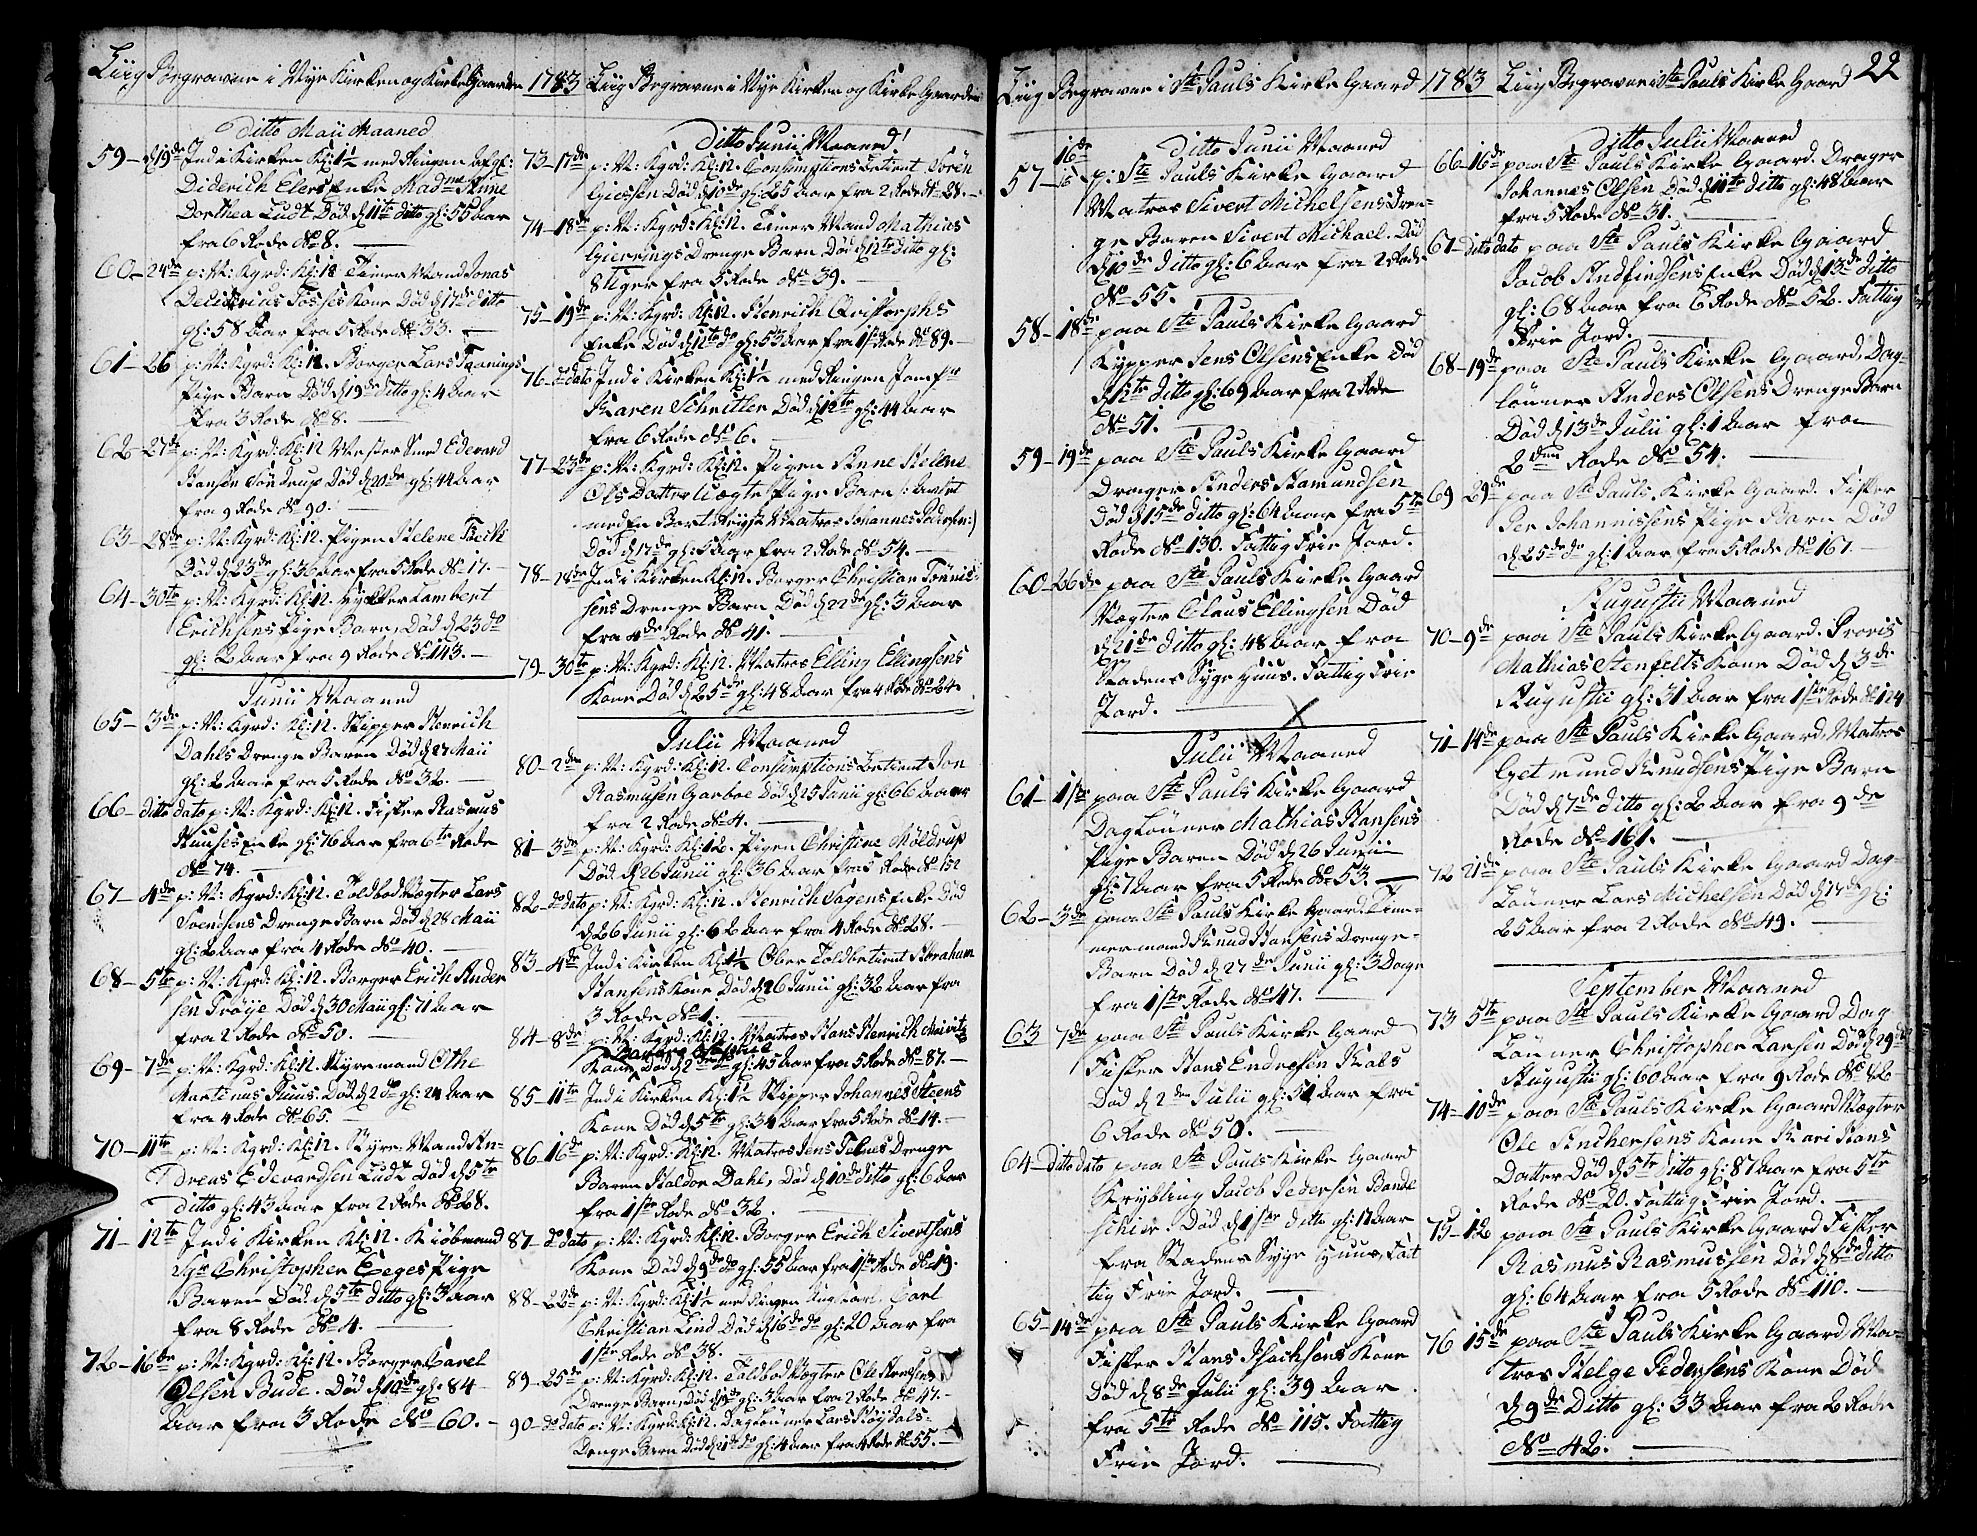 Liig Begravne i Nye Kirken og Kirke Gaarden 1783
Ditto Maii Maaned
59 – d 19de Ind i Kirken Kl: 1½ med Ringen afgl:
Diderich Elers Enke Madme Anne
Dorthea Ludt Død d 11te ditto gl: 55 Aar
fra 6 Rode No 8.
60 – 24de p: N: Kgrd: Kl: 12 Timer Mand Jonas
Kone Død d 17de ditto
gl: 58 Aar fra 5 Rode No 33.
61 – 26 p: N: Kgrd: Kl: 12. Borger Lars
Pige Barn Død d 19de ditto gl: 4 Aar
fra 3 Rode No 8.
62 – 27de p: N: Kgrd: Kl: 12 Mester Smed Edevard
Hansen Sondrup Død d 20de gl: 44 Aar
fra 9 Rode No 90.
63 – 28de p: N: Kgrd: Kl: 12. Pigen Helene
Død d 23de gl: 36 Aar fra 5 Rode No 17.
64 – 30te p: N: Kgrd: Kl: 12. Lambert
Erichsens Pige Barn, Død d 23de
gl: 2 Aar fra 9 Rode No 143.
Junii Maaned
65 – 3de p: N: Kgrd: Kl: 12. Skipper Henrich
Dahls Drenge Baren Død d 27 Maii
gl: 2 Aar fra 5 Rode No 32.
66 – ditto dato p: N: Kgrd: Kl: 12. Fisker Rasmus
Enke gl: 76 Aar fra 6te Rode
No 74.
67 – 4de p: N: Kgrd: Kl: 12. Toldbod Vægter Lars
Svendsens Drenge Barn Død d 28 Maii
gl: 2 Aar fra 4 Rode No 40.
68 – 5te p: N: Kgrd: Kl: 12. Borger Erich Ander
sen Trøye Død d 30 Maii gl: 71 Aar
fra 2 Rode No 50.
69 – 7de p: N: Kgrd: Kl: 12. Styremand Othe
Martinus Død d 2de gl: 24 Aar
fra 4 Rode No 65.
70 – 11te p: N: Kgrd: Kl: 12. Styre Mand An-
dreas Edevardsen Ludt Død d 5te
ditto gl: 43 Aar fra 2 Rode No 28.
71 – 12te Ind i Kirken Kl: 12. Kiøbmand
Sgr Christopher Eeges Pige
Baren Død d 5te ditto gl: 3 Aar
fra 8 Rode No 4.
72 – 16de p: N: Kgrd: Kl: 12. Borger Carel
Olsen Bude. Død d 10de gl: 84
Aar fra 3 Rode No 60.
Liig Begravne i Nye Kirken og Kirke Gaarden
Ditto Junii Maaned!
73 – 17de p: N: Kgrd: Kl: 12. Consumptions Betient Søren
Giessen Død d 10de gl: 25 Aar fra 2 Rode No 28.
74 – 18de p: N: Kgrd: Kl: 12. Timer Mand Mathias
Gierrings Drenge Barn Død d 12te ditto gl:
8 Uger fra 5 Rode No 39.
75 – 19de p: N: Kgrd: Kl: 12. Henrich Christophs
Enke Død d 12te do gl: 53 Aar fra 1ste Rode No 89.
76 – do dato Ind i Kirken Kl: 1½ med Ringen Jomfr
Karen Schnitler Død d 12te gl: 44 Aar
fra 6 Rode No 6.
77 – 23de p: N: Kgrd: Kl: 12. Pigen Anne Helene
Ols Datter Uægte Pige Barn /: avlet
med en Matros Johannes Pedersen :/
Død d 17de gl: 5 Aar fra 2 Rode No 54.
78 – 28de Ind i Kirken Kl: 12. Borger Christian Tønnis-
sens Drenge Barn Død d 22de gl: 3 Aar
fra 4de Rode No 41.
79 – 30te p: N: Kgrd: Kl: 12. Matros Elling Ellingsens
Kone Død d 25de gl: 48 Aar fra 4 Rode No 24.
Julii Maaned
80 – 2den p: N: Kgrd: Kl: 12. Consumptions Betient Jon
Rasmusen Garboe Død d 25 Junii gl: 66 Aar
fra 2 Rode No 4.
81 – 3de p: N: Kgrd: Kl: 12. Pigen Christine Møldrup
Død d 26 Junii gl: 36 Aar fra Rode No 152
82 – do dato p: N: Kgrd: Kl: 12. Henrich Sagens Enke Død
d 26 Junii gl: 62 Aar fra 4 Rode No 28.
83 – 4de Ind i Kirken Kl: 1½ Ober Toldbetient Abraham
Hansens Kone Død d 26 Junii gl: 32 Aar fra
3 Rode No 1.
84 – 8de p: N: Kgrd: Kl: 12. Matros Hans Henrich
Kone Død d 2de gl: 45 Aar fra 5 Rode No 87.
85 – 11te Ind i Kirken Kl: 1½ Skipper Johannes Steens
Kone Død d 5te gl: 34 Aar fra 5 Rode No 14.
86 – 16de p: N: Kgrd: Kl: 12. Matros Jens Drenge
Baren Haldor Dahl, Død d 10de ditto gl: 6 Aar
fra 1ste Rode No 32.
87 – do dato p: N: Kgrd: Kl: 12. Borger Erich Sivertsens
Kone Død d 9de do gl: 55 Aar fra 1ste Rode No 19.
88 – 22de p: N: Kgrd: Kl: 1½ med Ringen Ung Karl Carl
Christian Lind Død d 16de do gl: 20 Aar fra
1ste Rode No 38.
89 – 25de p: N: Kgrd: Kl: 12. Toldbod Vægter Ole
Drenge Barn, Død gl: 3 Aar fra 2 Rode No 47.
90 – do dato p: N: Kgrd: Kl: 12. Daglønner Lars
Drenge Barn Død gl: 4 Aar fra 4 Rode No 55.
Liig Begravne i Ste Pauls Kirke Gaard 1783
Ditto Junii Maaned
16de
57 – 16 – p: Ste Pauls Kirke Gaard
Matros Sivert Michelsens Dren-
ge Baren Sivert Michael. Død
d 10de ditto gl: 6 Aar fra 2 Rode
No 55.
58 – 18de paa Ste Pauls Kirke Gaard
Kypper Jens Olsens Enke Død
d 12te ditto gl: 69 Aar fra 2 Rode
No 51.
59 – 19de paa Ste Pauls Kirke Gaard
Drager Anders Aamundsen
Død d 15de ditto gl: 64 Aar fra 5te
Rode No 130. Fattig Frie Jord.
60 – 26de paa Ste Pauls Kirke Gaard
Vægter Claus Ellingsen Død
d 21de ditto gl: 48 Aar fra
Stadens Syge Huus. Fattig Frie
Jord.
X
Julii Maaned
61 – 1ste paa Ste Pauls Kirke Gaard
Dagløner Mathias Hansens
Pige Baren Død d 26 Junii
gl: 7 Aar fra 5 Rode No 53.
62 – 3de paa Ste Pauls Kirke Gaard. Tim-
mermand Knud Hansens Drenge-
Barn Død d 27de Junii gl: 3 Dage
fra 1ste Rode No 47.
63 7de paa Ste Pauls Kirke Gaard
Fisker Hans Endresen
Død d 2den Julii gl: 51 Aar fra
6 Rode No 50.
64 – Ditto Dato paa Ste Pauls Kirke Gaard
Krybling Jacob Pedersen
Død d 1ste ditto gl: 12 Aar
fra Stadens Syge Huus, Fat
tig Frie Jord.
65 – 14de paa Ste Pauls Kirke Gaard
Fisker Hans Isachsens Kone
Død d 8de Julii gl: 39 Aar
fra 5te Rode No 115. Fattig
Frie Jord.
Liig Begravne i Ste Pauls Kirke Gaard 22
Ditto Julii Maaned
66 – 16de paa Ste Pauls Kirke Gaard. Drager
Johannes Olsen Død d 11te ditto gl: 48 Aar
fra 5 Rode No 31.
67 – ditto dato paa Ste Pauls Kirke Gaard
Jacob Andfindsens Enke Død d 13de ditto
gl: 68 Aar fra 6 Rode No 52. Fattig
Frie Jord.
68 – 19de paa Ste Pauls Kirke Gaard, Dag-
lønner Anders Olsens Drenge Barn
Død d 13de Julii gl: 1 Aar fra
2den Rode No 54.
69 29de paa Ste Pauls Kirke Gaard. Fisker
Per Johannissens Pige Barn Død
d 25de do gl: 1 Aar fra 5 Rode No 167.
Augustii Maaned
70 – 9de paa Ste Pauls Kirke Gaard.
Mathias Stenfelts Kone Død d 3de
Augustii gl: 31 Aar fra 1ste Rode No 124
71 – 14de paa Ste Pauls Kirke Gaard, Matros
Getmund Knudsens Pige Barn
Død d 7de ditto gl: 2 Aar fra 9de
Rode No 161.
72 21de paa Ste Pauls Kirke Gaard Dag-
Lønner Lars Michelsen Død d 17de gl:
25 Aar fra 2 Rode No 49.
September Maaned
73 5te paa Ste Pauls Kirke Gaard Dag
Lønner Christopher Larsen Død d 29de
Augustii gl: 60 Aar fra 9 Rode No 82
74 – 10de paa Ste Pauls Kirke Gaard Vægter
Ole Andhersens Kone Kari Hans
Datter Død d 5te ditto gl: 87 Aar fra 5te
Rode No 20. Fattig Frie Jord.
75 – 12 paa Ste Pauls Kirke Gaard Fisker
Rasmus Rasmussen Død d 8de ditto
gl: 64 Aar fra 5 Rode No 110.
76 15de paa Ste Pauls Kirke Gaard Ma-
tros Helge Pedersens Kone Død
d 9de Ditto gl: 33 Aar fra 2 Rode
No 42.